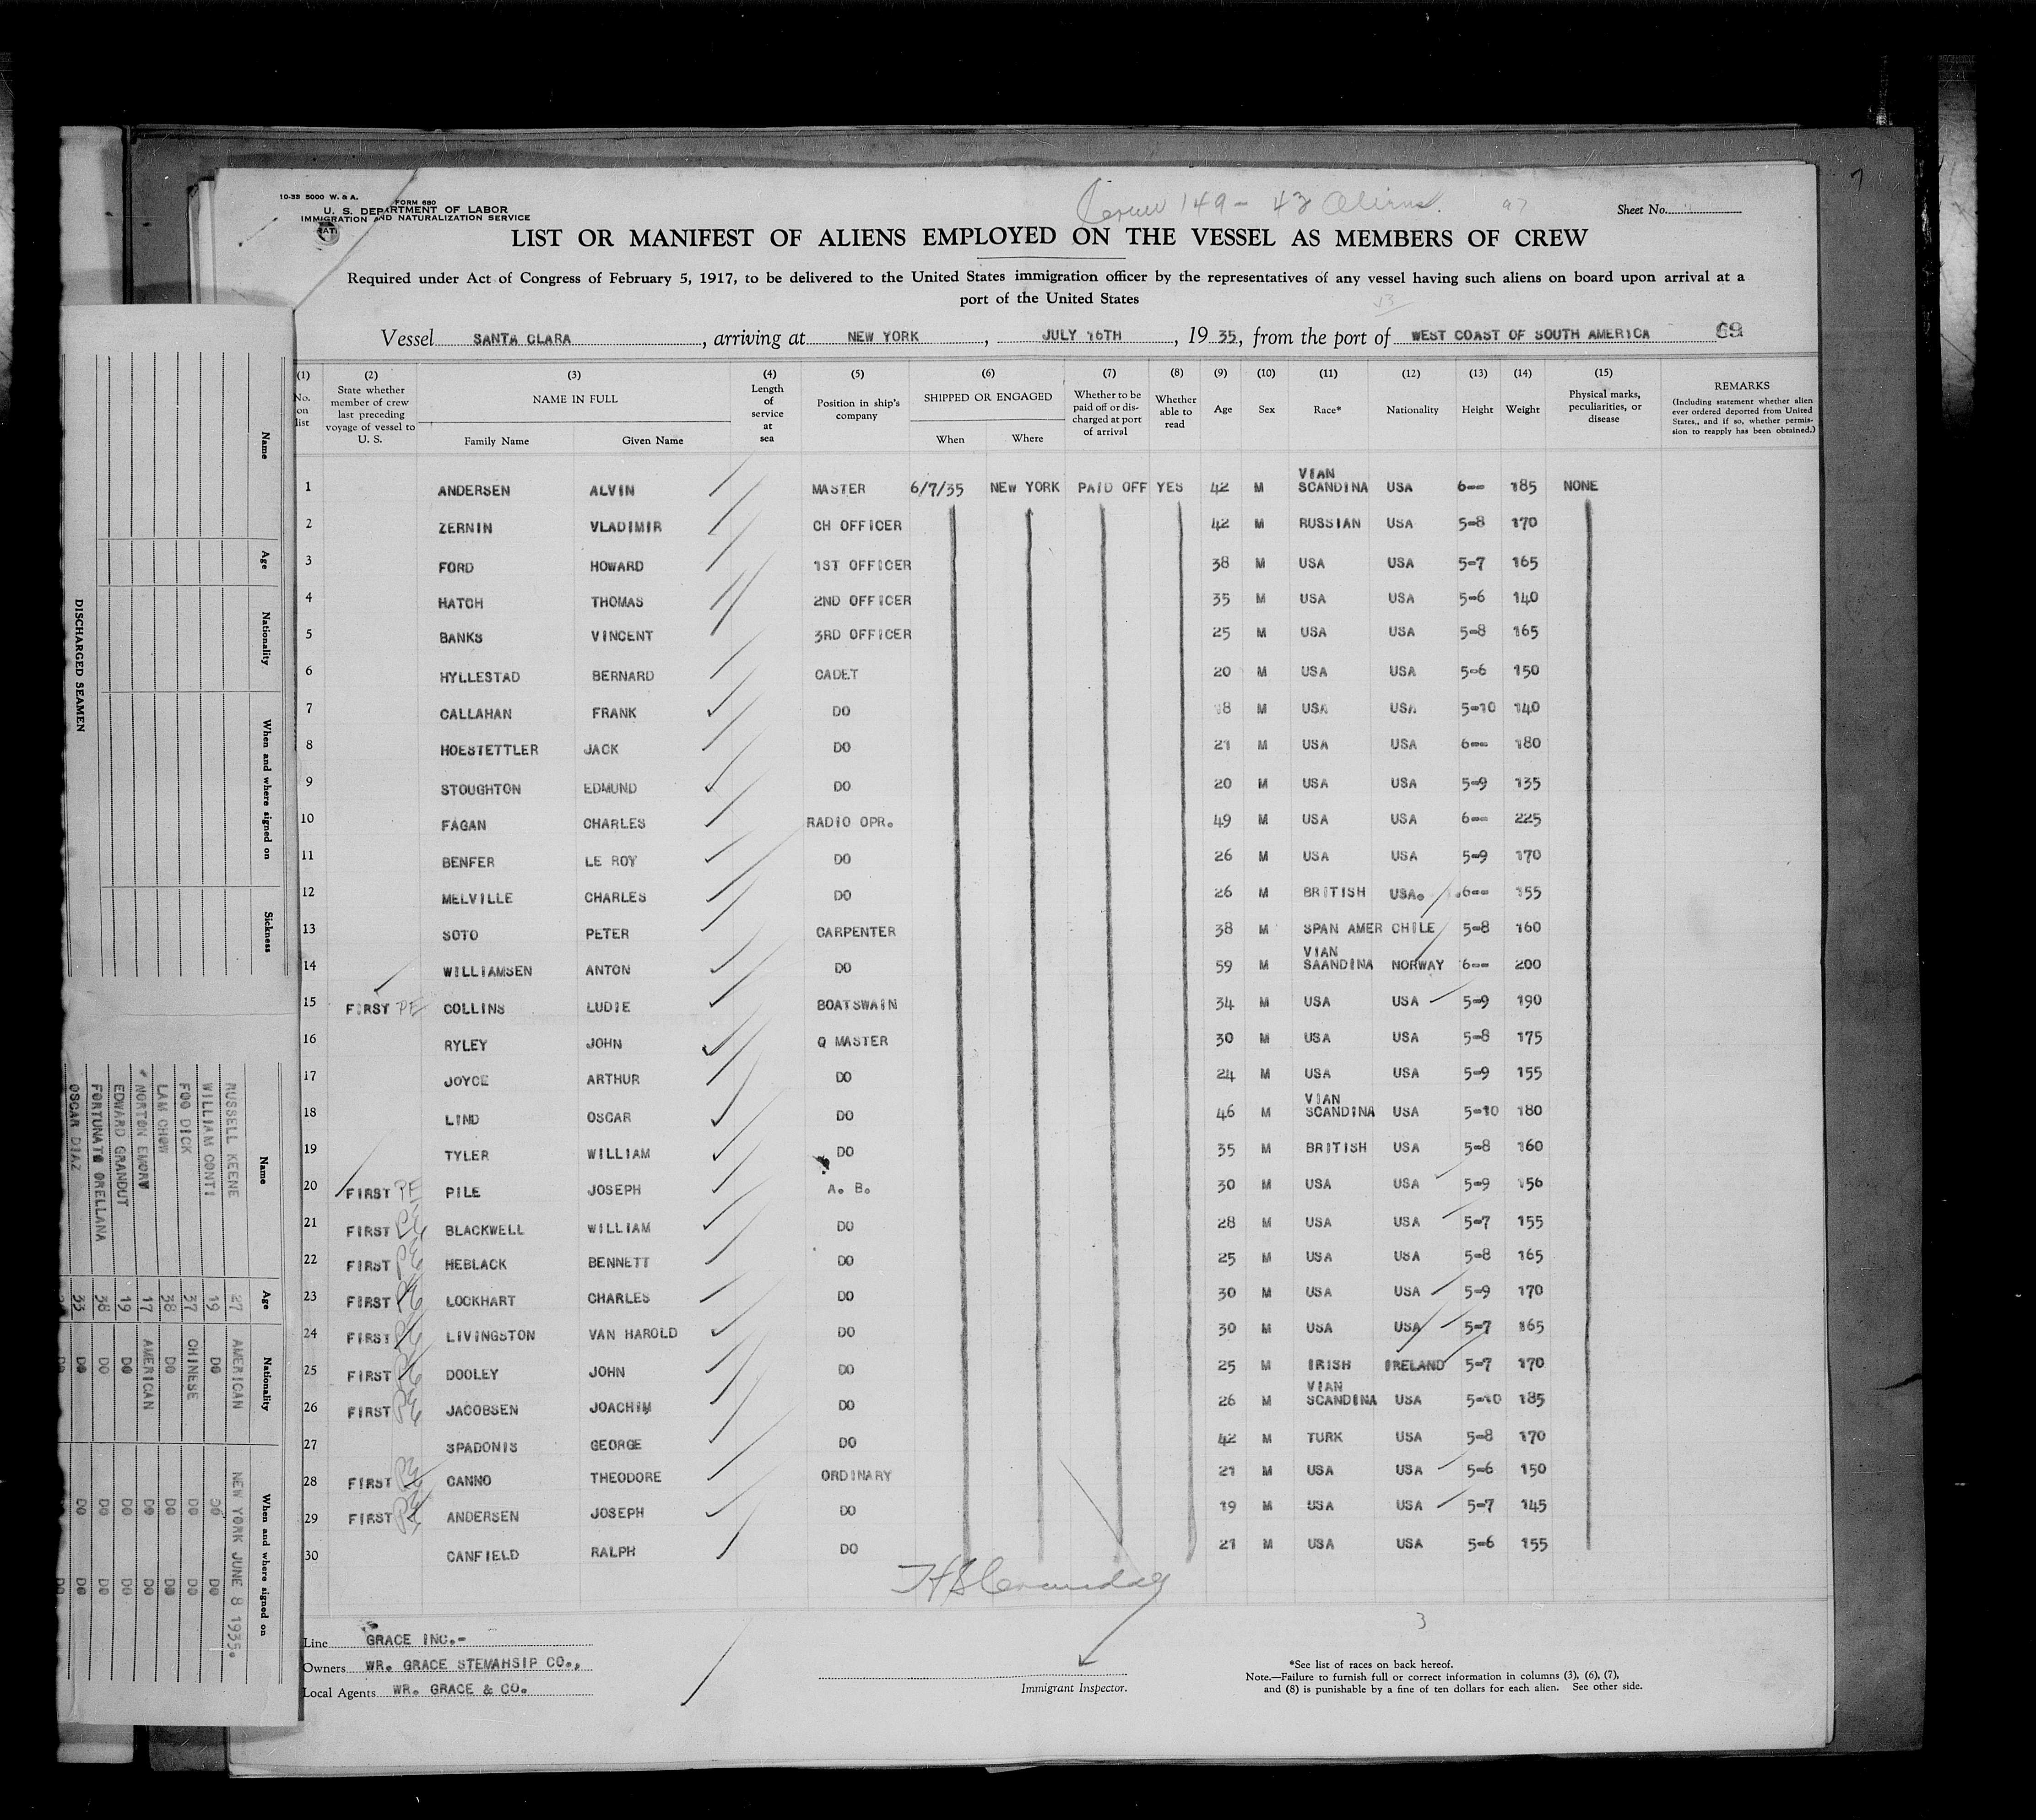 10-33 5000 W. & A.
FORM 680
U. S. DEPARTMENT OF LABOR
IMMIGRATION AND NATURALIZATION SERVICE
Crew 149 - 43 Aliens.
Sheet No.
LIST OR MANIFEST OF ALIENS EMPLOYED ON THE VESSEL AS MEMBERS OF CREW
Required under Act of Congress of February 5, 1917, to be delivered to the United States immigration officer by the representatives of any vessel having such aliens on board upon arrival at a
port of the United States
Vessel SANTA CLARA, arriving at NEW YORK, JULY 16TH, 1935, from the port of WEST COAST OF SOUTH AMERICA 69
(1) No. on list
(2) State whether member of crew last preceding voyage of vessel to U. S.
(3) NAME IN FULL Family Name Given Name
(4) Length of service at sea
(5) Position in ship's company
(6) SHIPPED OR ENGAGED When Where
(7) Whether to be paid off or discharged at port of arrival
(8) Whether able to read
(9) Age
(10) Sex
(11) Race*
(12) Nationality
(13) Height
(14) Weight
(15) Physical marks, peculiarities, or disease
REMARKS (Including statement whether alien ever ordered deported from United States., and if so, whether permission to reapply has been obtained.)
1 ANDERSEN ALVIN MASTER 6/7/35 NEW YORK PAID OFF YES 42 M SCANDINAVIAN USA 6-- 185 NONE
2 ZERNIN VLADIMIR CH OFFICER 42 M RUSSIAN USA 5-8 170
3 FORD HOWARD 1ST OFFICER 38 M USA USA 5-7 165
4 HATCH THOMAS 2ND OFFICER 35 M USA USA 5-6 140
5 BANKS VINCENT 3RD OFFICER 25 M USA USA 5-8 165
6 HYLLESTAD BERNARD CADET 20 M USA USA 5-6 150
7 CALLAHAN FRANK DO 18 M USA USA 5-10 140
8 HOESTETTLER JACK DO 21 M USA USA 6-- 180
9 STOUGHTON EDMUND DO 20 M USA USA 5-9 135
10 FAGAN CHARLES RADIO OPR. 49 M USA USA 6-- 225
11 BENFER LE ROY DO 26 M USA USA 5-9 170
12 MELVILLE CHARLES DO 26 M BRITISH USA. 6-- 155
13 SOTO PETER CARPENTER 38 M SPAN AMER CHILE 5-8 160
14 WILLIAMSEN ANTON DO 59 M SAANDINAVIAN NORWAY 6-- 200
15 FIRST PE COLLINS LUDIE BOATSWAIN 34 M USA USA 5-9 190
16 RYLEY JOHN Q MASTER 30 M USA USA 5-8 175
17 JOYCE ARTHUR DO 24 M USA USA 5-9 155
18 LIND OSCAR DO 46 M SCANDINAVIAN USA 5-10 180
19 TYLER WILLIAM DO 35 M BRITISH USA 5-8 160
20 FIRST PE PILE JOSEPH A. B. 30 M USA USA 5-9 156
21 FIRST PE BLACKWELL WILLIAM DO 28 M USA USA 5-7 155
22 FIRST PE HEBLACK BENNETT DO 25 M USA USA 5-8 165
23 FIRST PE LOCKHART CHARLES DO 30 M USA USA 5-9 170
24 FIRST PE LIVINGSTON VAN HAROLD DO 30 M USA USA 5-7 165
25 FIRST PE DOOLEY JOHN DO 25 M IRISH IRELAND 5-7 170
26 FIRST PE JACOBSEN JOACHIM DO 26 M SCANDINAVIAN USA 5-10 185
27 SPADONIS GEORGE DO 42 M TURK USA 5-8 170
28 FIRST PE CANNO THEODORE ORDINARY 21 M USA USA 5-6 150
29 FIRST PE ANDERSEN JOSEPH DO 19 M USA USA 5-7 145
30 CANFIELD RALPH DO 21 M USA USA 5-6 155
3
Line GRACE INC.-
Owners WR. GRACE STEMAHSIP CO.,
Local Agents WR. GRACE & CO.
Immigrant Inspector.
*See list of races on back hereof.
Note.—Failure to furnish full or correct information in columns (3), (6), (7),
and (8) is punishable by a fine of ten dollars for each alien. See other side.
DISCHARGED SEAMEN
Name Age Nationality When and where signed on Sickness
Name Age Nationality When and where signed on
RUSSELL KEENE 27 AMERICAN NEW YORK JUNE 8 1935.
WILLIAM CONTI 19 DO DO DO
FOO DICK 37 CHINESE DO DO
LAM CHOW 38 DO DO DO
* NORTON EMORY 17 AMERICAN DO DO
EDWARD GRANDUT 19 DO DO DO
FORTUNATO ORELLANA 38 DO DO DO
OSCAR DIAZ 33 DO DO DO